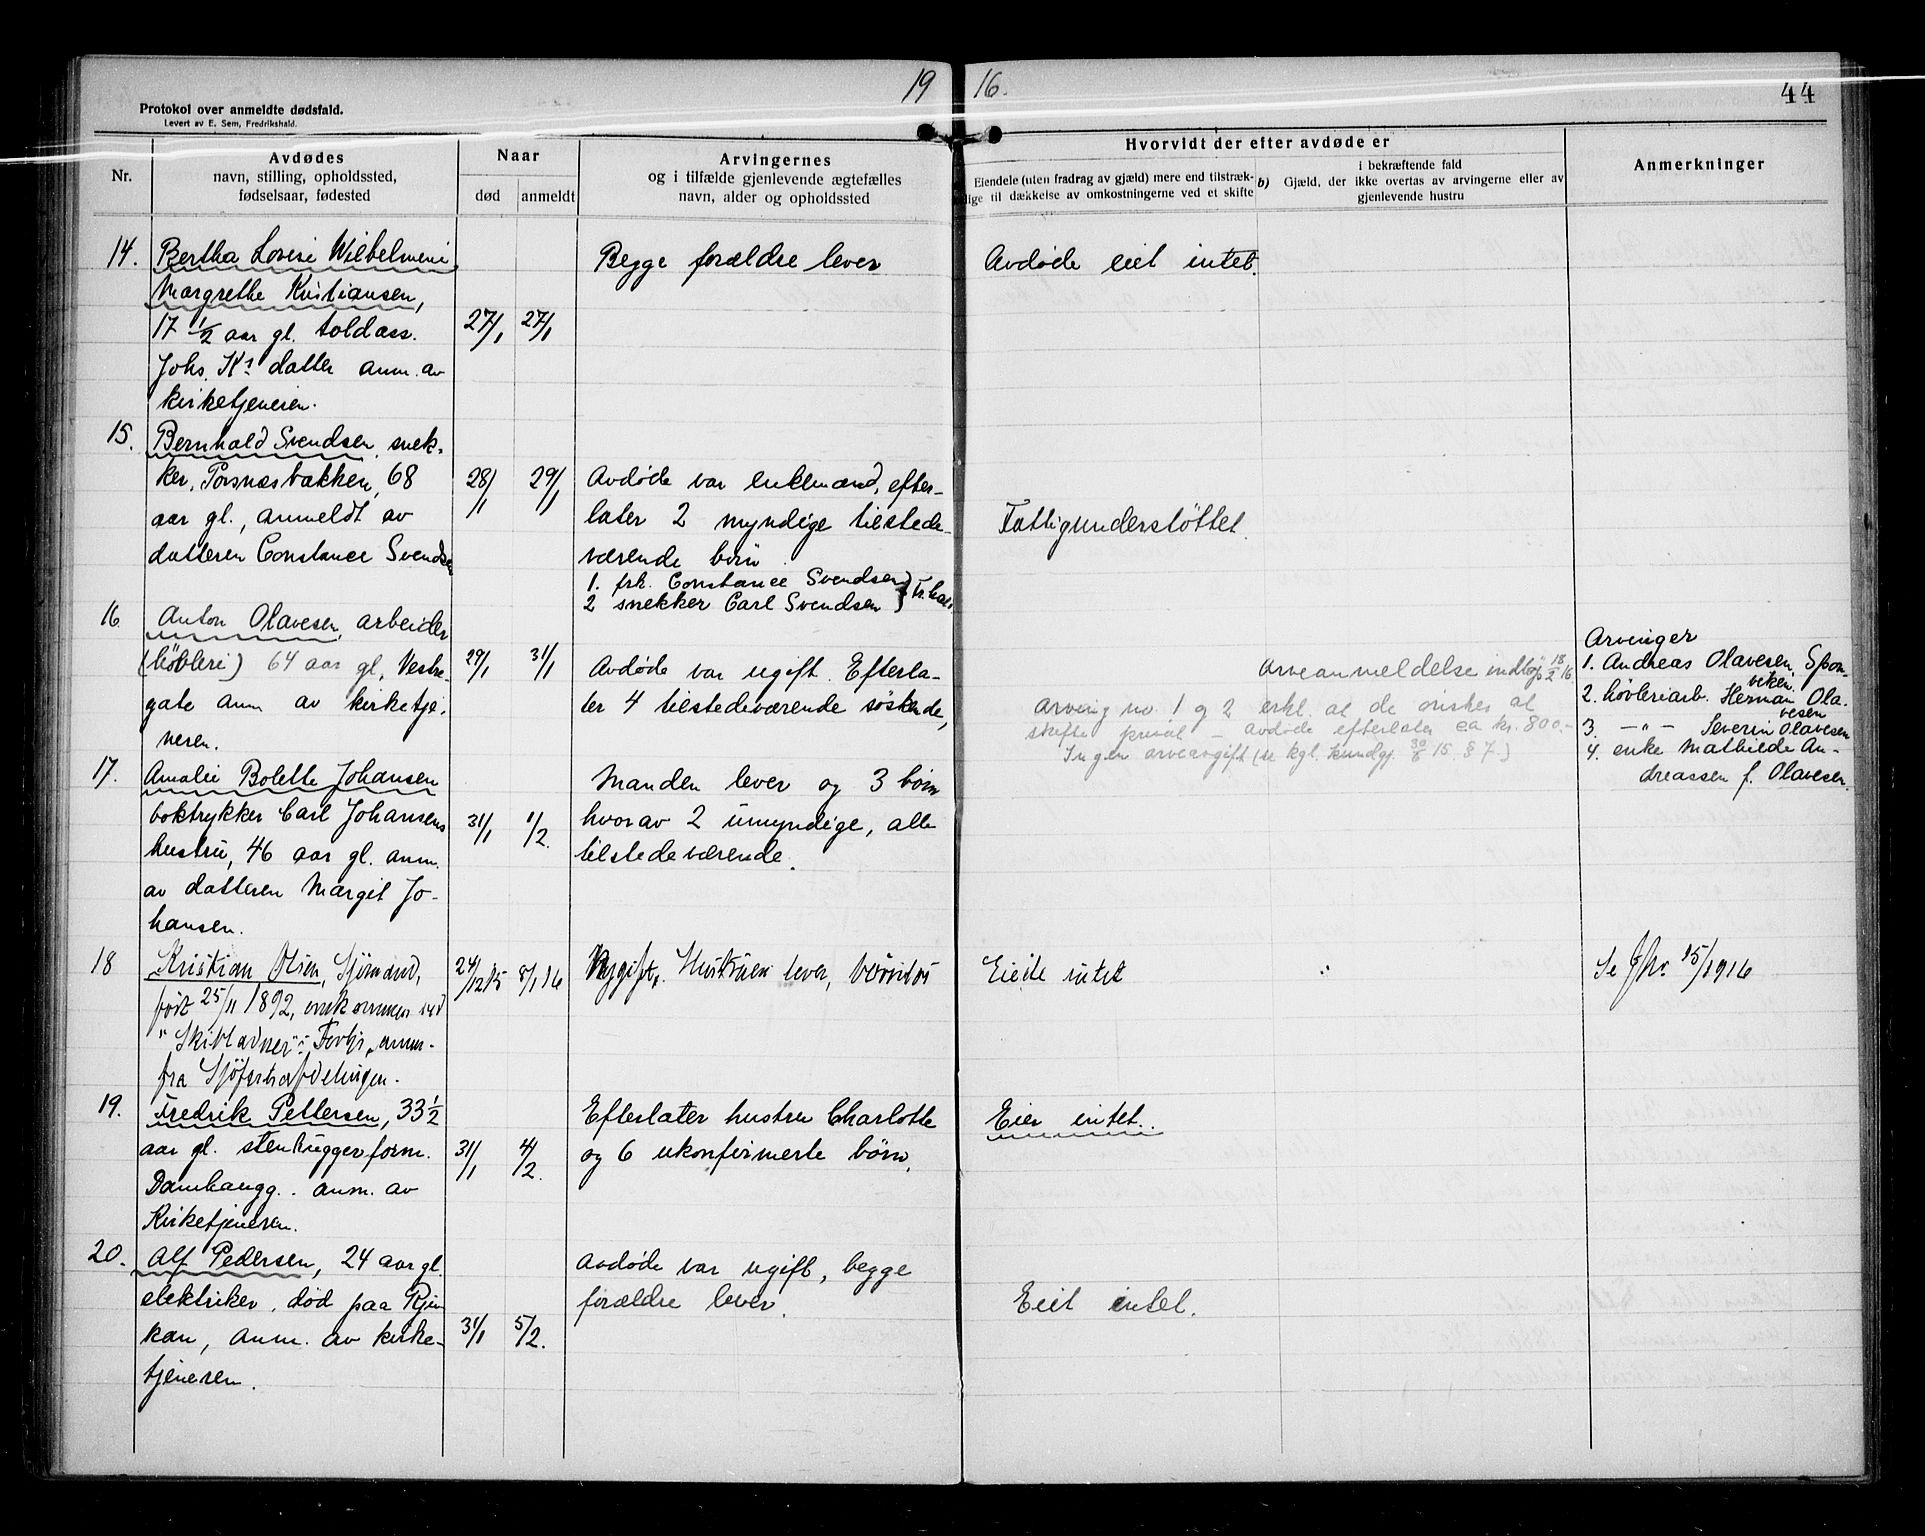 19 16.
44
Protokol over anmeldte dødsfald.
Levert av E. Sem, Fredrikshald.
Nr.
Avdødes
navn, stilling, opholdssted,
fødselsaar, fødested
Naar
død anmeldt
Arvingernes
og i tilfælde gjenlevende ægtefælles
navn, alder og opholdssted
Hvorvidt der efter avdøde er
Eiendele (uten fradrag av gjæld) mere end tilstræk-
lige til dækkelse av omkostningerne ved et skifte
b)
i bekræftende fald
Gjæld, der ikke overtas av arvingerne eller av
gjenlevende hustru
Anmerkninger
14. Bertha Lovise Wilhelmine
Margrethe Kristiansen,
17 1/2 aar gl. toldass.
Johs. Ks datter anm. av
kirketjeneren.
27/1 27/1
Begge forældre lever
Avdøde eiet intet.
15. Bernhald Svendsen, snek-
ker, Porsnæsbakken, 68
aar gl., anmeldt av
datteren Constance Svendsen
28/1 29/1
Avdøde var enkemand, efter-
later 2 myndige tilstede-
værende børn
1. frk. Constance Svendsen
2 snekker Carl Svendsen } Fr.hald
Fattigunderstøttet.
16 Anton Olavesen, arbeider
(høvleri) 64 aar gl, Vestre-
gate anm av kirketje-
neren.
29/1 31/1
Avdøde var ugift. Efterla-
ter 4 tilstedeværende søskende,
Arveanmeldelse indtog 18/2 16
Arving no. 1 og 2 erkl. at de ønsker at
skifte privat – avdøde efterlater ca kr. 800.-
Ingen arveavgift (se kgl. kundgj. 30/6 15 § 7.)
Arvinger
1. Andreas Olavesen, Spon-
viken.
2. høvleriarb. Herman Ola-
vesen
3. –"– Severin Olavesen
4. enke Mathilde An-
dreassen f. Olavesen.
17. Amalie Bolette Johansen
boktrykker Carl Johansens
hustru, 46 aar gl. anm.
av datteren Margit Jo-
hansen.
31/1 1/2.
Manden lever og 3 børn
hvorav 2 umyndige, alle
tilstedeværende.
18 Kristian Olsen, Sjømand,
født 25/11 1892, omkommen ved
"Skibladner"s Forlis, anm.
fra Sjøfartsafdelingen.
24/12 15 8/1 16
Nygift. Hustruen lever, barnløs
Eiede intet
"
Se Jfr. 15/1916
19. Fredrik Pettersen, 33 1/2
aar gl. stenhugger form.
Damhaugg. anm. av
Kirketjeneren.
31/1 4/2.
Efterlater hustru Charlotte
og 6 ukonfirmerte børn,
Eier intet..
20. Alf Pedersen, 24 aar gl.
elektriker, død paa Rju-
kan, anm. av kirke-
tjeneren.
31/1 5/2.
Avdøde var ugift, begge
forældre lever.
Eiet intet.